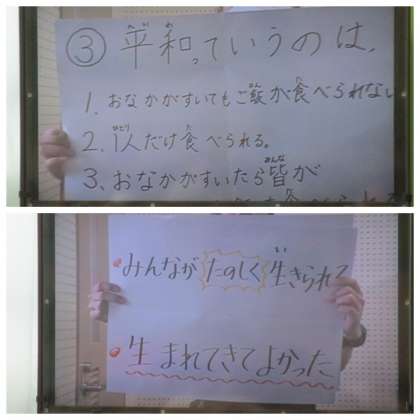 ③平和っていうのは、
1. おなかがすいてもご飯が食べられない
2. 1人だけ食べられる。
3. おなかがすいたら皆が
みんなが たのしく 生きられて
生まれてきてよかった